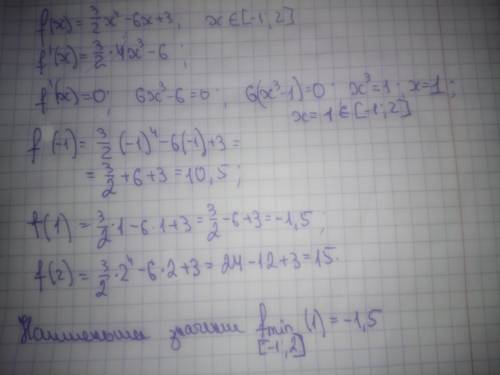 f(x) = 3/2 x⁴ - 6x + 3, x ∈ [-1, 2]
f'(x) = 3/2 · 4x³ - 6 ;
f'(x) = 0; 6x³ - 6 = 0 ; 6(x³ - 1) = 0; x³ = 1 ; x = 1 ;
x = 1 ∈ [-1; 2]
f(-1) = 3/2 (-1)⁴ - 6(-1) + 3 =
= 3/2 + 6 + 3 = 10,5 ;
f(1) = 3/2 · 1 - 6 · 1 + 3 = 3/2 - 6 + 3 = -1,5 ;
f(2) = 3/2 · 2⁴ - 6 · 2 + 3 = 24 - 12 + 3 = 15.
Наименьшее значение f min (1) = -1,5
[-1, 2]